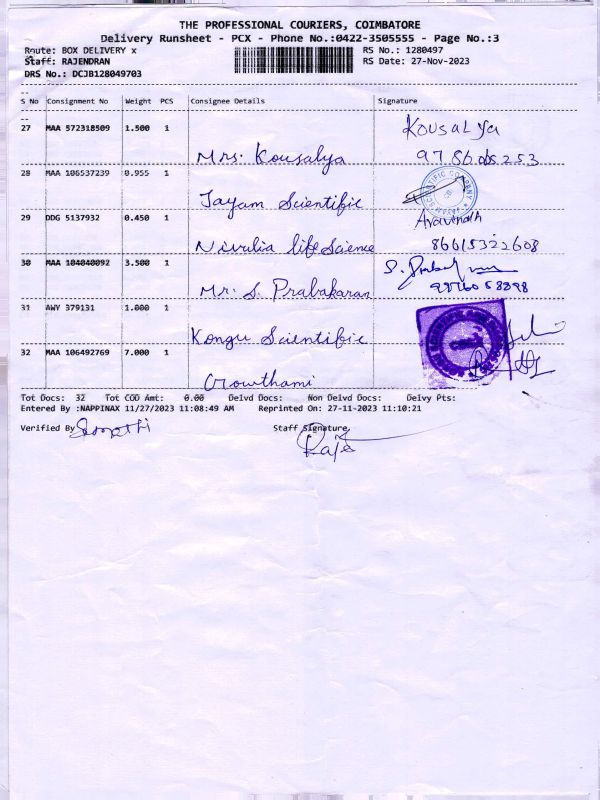 THE PROFESSIONAL COURIERS, COIMBATORE
Delivery Runsheet - PCX - Phone No.:0422-3505555 - Page No.:3
Route: BOX DELIVERY x RS No.: 1280497
Staff: RAJENDRAN RS Date: 27-Nov-2023
DRS No.: DCJB128049703
S No Consignment No Weight PCS Consignee Details Signature
27 MAA 572318509 1.500 1 Kousalya
Mrs. Kousalya
28 MAA 106537239 0.955 1
Jayam Scientific
29 DDG 5137932 0.450 1 Aravindh
life Science 86615322608
30 MAA 104040092 3.500 1
Mr. S. Prabakaran
31 AWY 379131 1.000 1
Kongu Scientific
32 MAA 106492769 7.000 1
Gowthami
Tot Docs: 32 Tot COD Amt: 0.00 Delvd Docs: Non Delvd Docs: Delvy Pts:
Entered By :NAPPINAX 11/27/2023 11:08:49 AM Reprinted On: 27-11-2023 11:10:21
Verified By Staff Signature